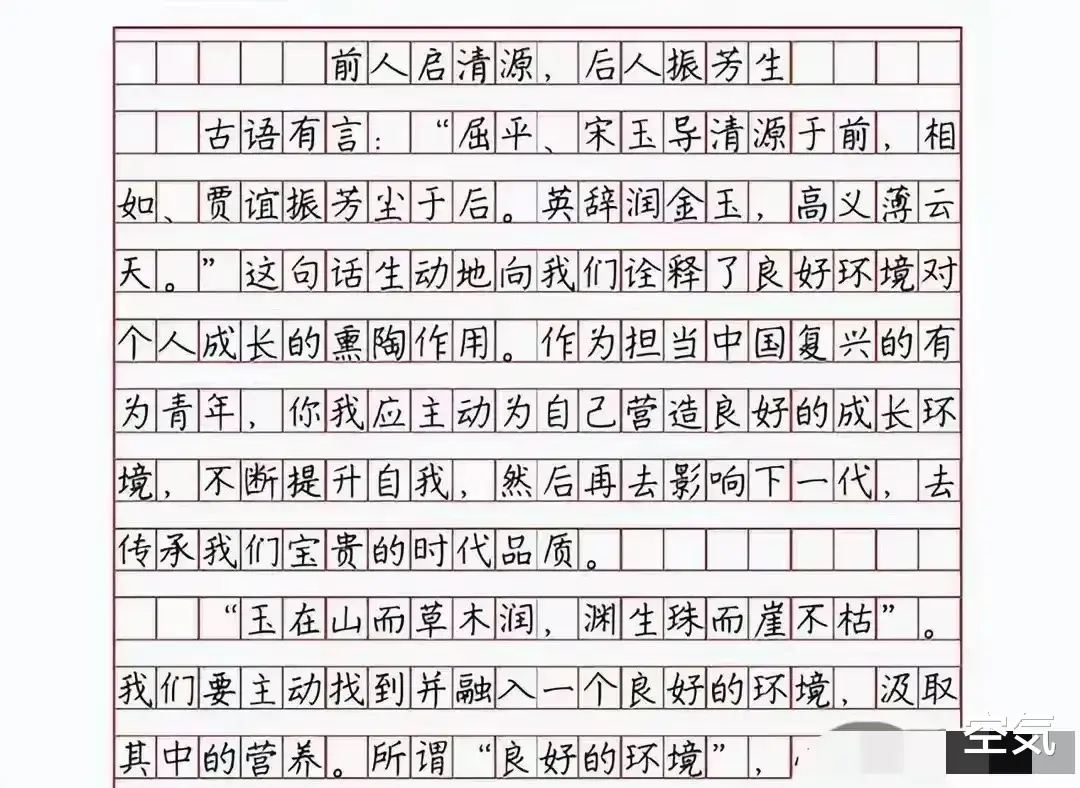 前人启清源，后人振芳生
古语有言：“屈平、宋玉导清源于前，相
如、贾谊振芳尘于后。英辞润金玉，高义薄云
天。”这句话生动地向我们诠释了良好环境对
个人成长的熏陶作用。作为担当中国复兴的有
为青年，你我应主动为自己营造良好的成长环
境，不断提升自我，然后再去影响下一代，去
传承我们宝贵的时代品质。
“玉在山而草木润，渊生珠而崖不枯”。
我们要主动找到并融入一个良好的环境，汲取
其中的营养。所谓“良好的环境”，
空気